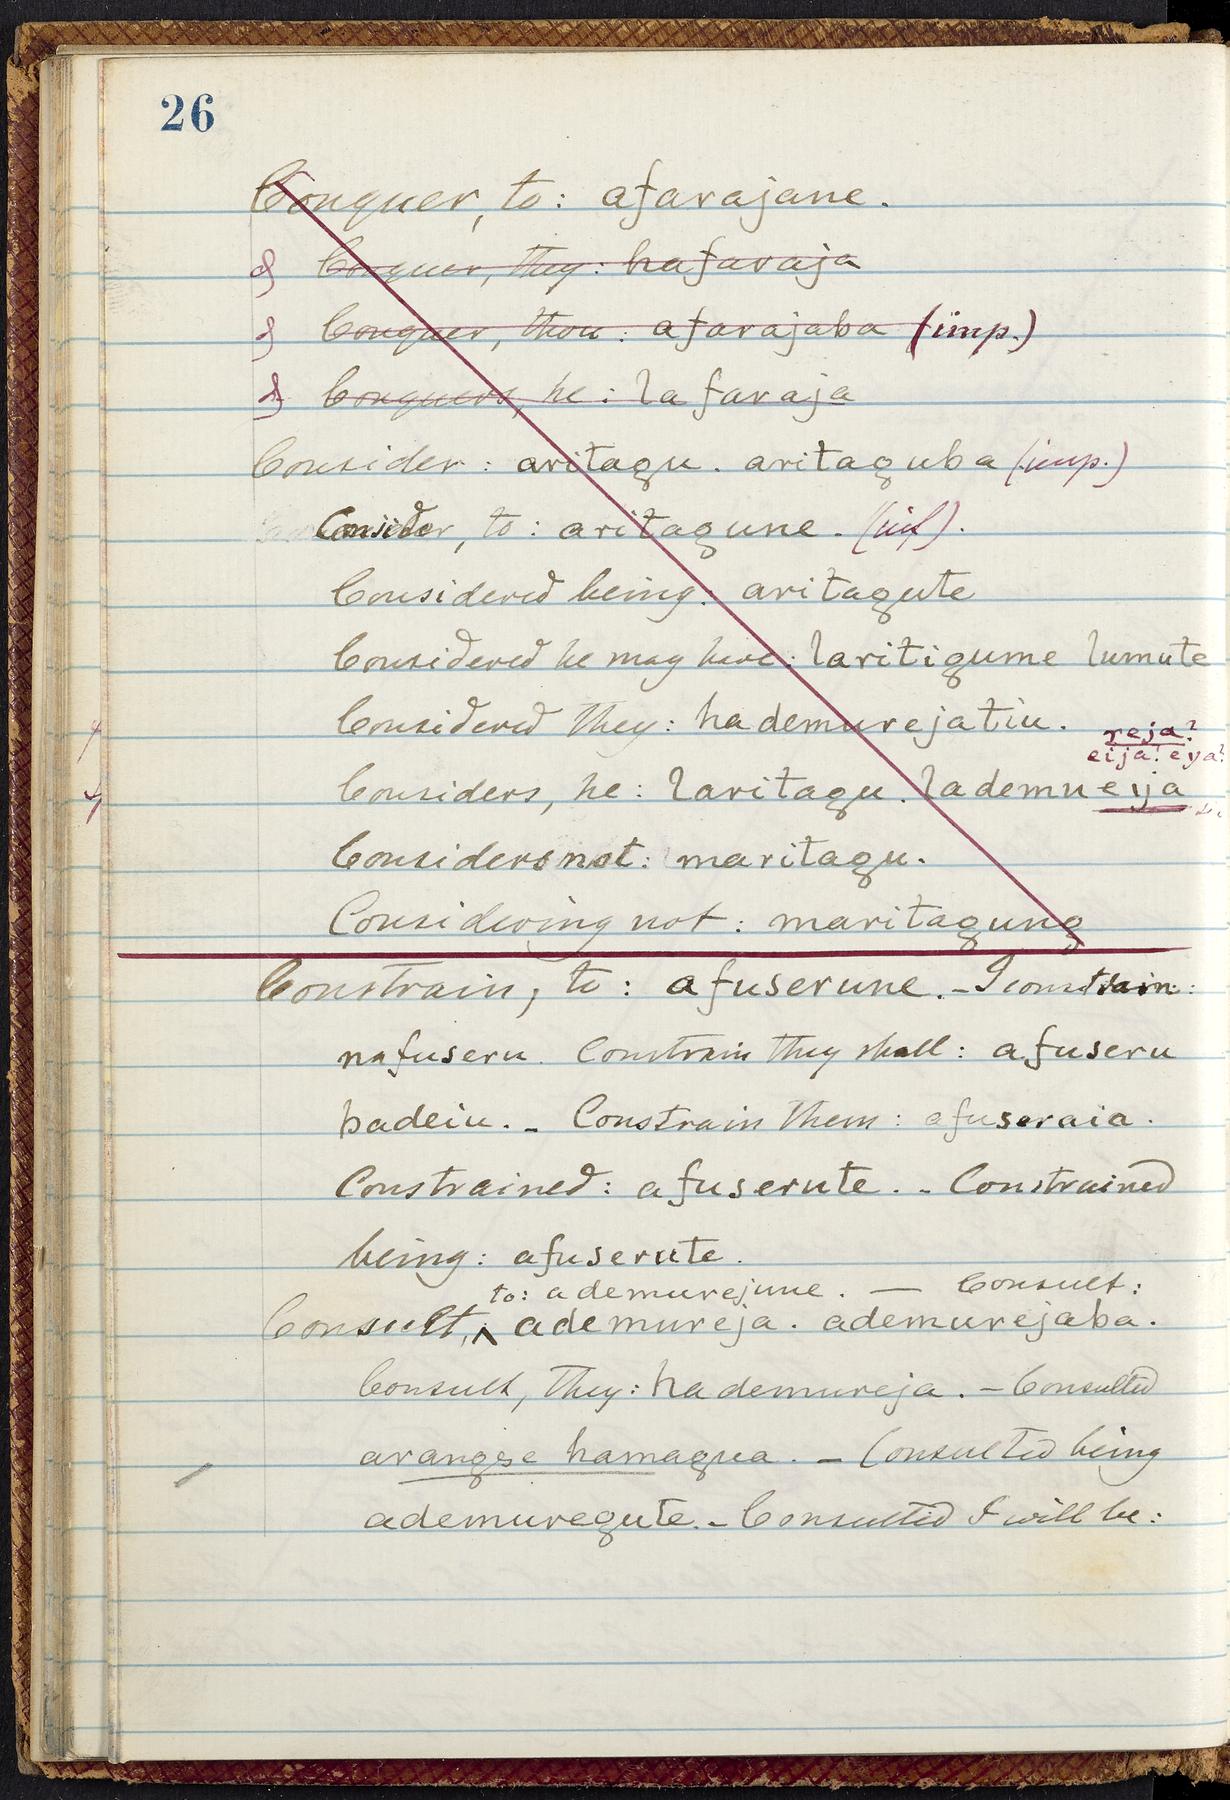 26
Conquer, to: afarajane.
Conquer, they: hafaraja
Conquer, thou: afarajaba (imp.)
Conquers, he: lafaraja
Consider: aritagu. aritaguba (imp.)
Consider, to: aritagune. (inf).
Considered being: aritagute
Considered he may have: laritigume lumute
Considered they: hademurejatiu.
reja?
eija? eya?
Considers, he: laritagu. lademueija
Considers not: maritagu.
Considering not: maritagung
Constrain, to: afuserune. - I constrain:
nafuseru. Constrain they shall: afuseru
hadeiu. - Constrain them: afuseraia.
Constrained: afuserute. - Constrained
being: afuserute.
to: ademurejune. — Consult:
Consult, ademureja. ademurejaba.
Consult, they: hademureja. - Consulted
arangse hamagua. - Consulted being
ademuregute. - Consulted I will be: